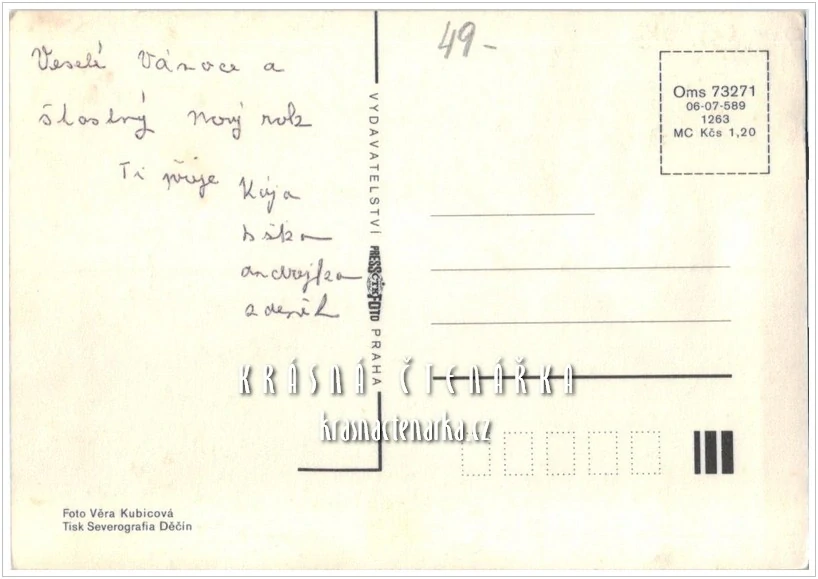 Veselé Vánoce a
šťastný nový rok
Ti přeje Kája
andrejka
zdeněk
49-
Oms 73271
06-07-589
1263
MC Kčs 1,20
VYDAVATELSTVÍ PRESSFOTO PRAHA
ČTK
KRÁSNÁ ČTENÁŘKA
krasnactenarka.cz
Foto Věra Kubicová
Tisk Severografia Děčín